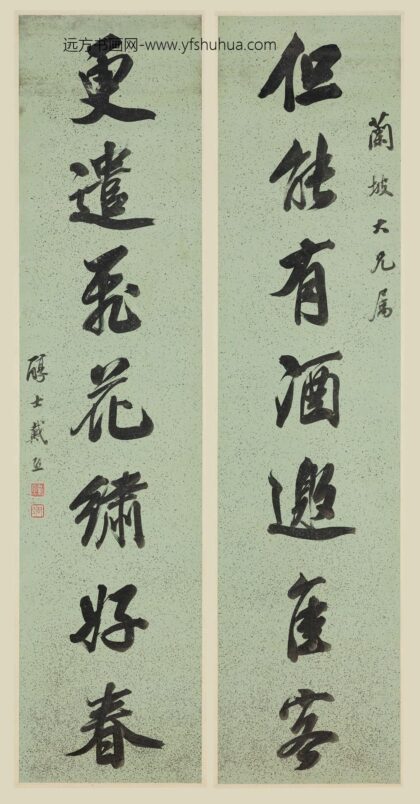 远方书画网-www.yfshuhua.com
蘭坡大兄屬
但能有酒邀佳客
更遣飛花繡好春
醇士戴熙